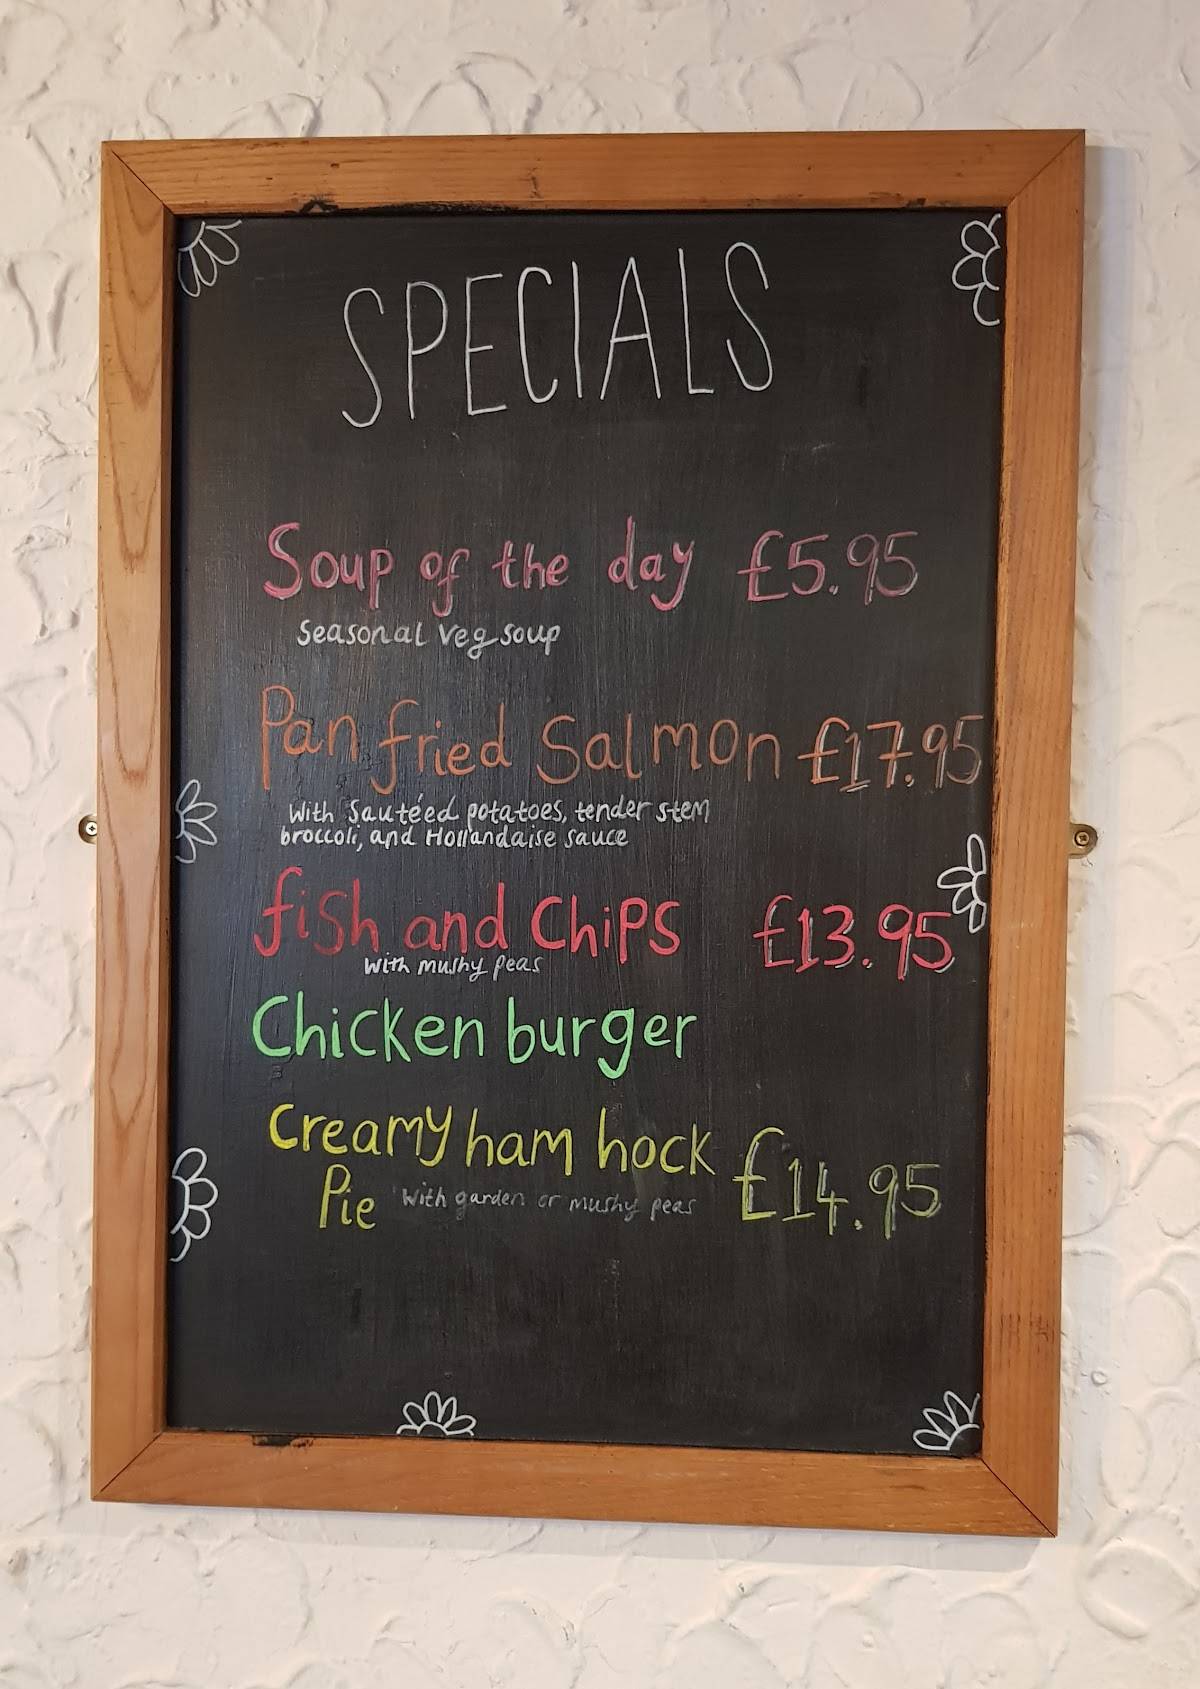 SPECIALS
Soup of the day £5.95
Seasonal veg soup
Pan fried Salmon £17.95
With Sautéed potatoes, tender stem
broccoli, and Hollandaise sauce
fish and Chips £13.95
With mushy peas
Chicken burger
Creamy ham hock £14.95
Pie With garden or mushy peas